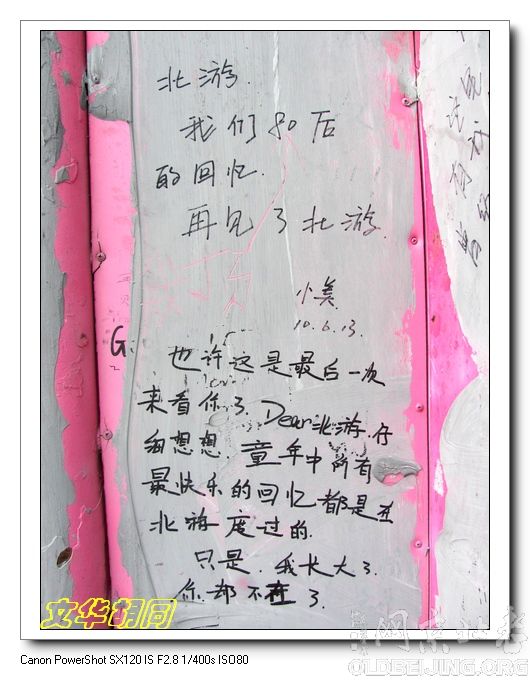 北游.
我们80后
的回忆.
再见了北游.
小美.
10.6.13.
G.
也许这是最后一次
来看你了. Dear北游.仔
细想想.童年中所有
最快乐的回忆都是在
北游度过的.
只是.我长大了.
你却不在了.
文华胡同
OLDBEIJING.ORG
Canon PowerShot SX120 IS F2.8 1/400s ISO80